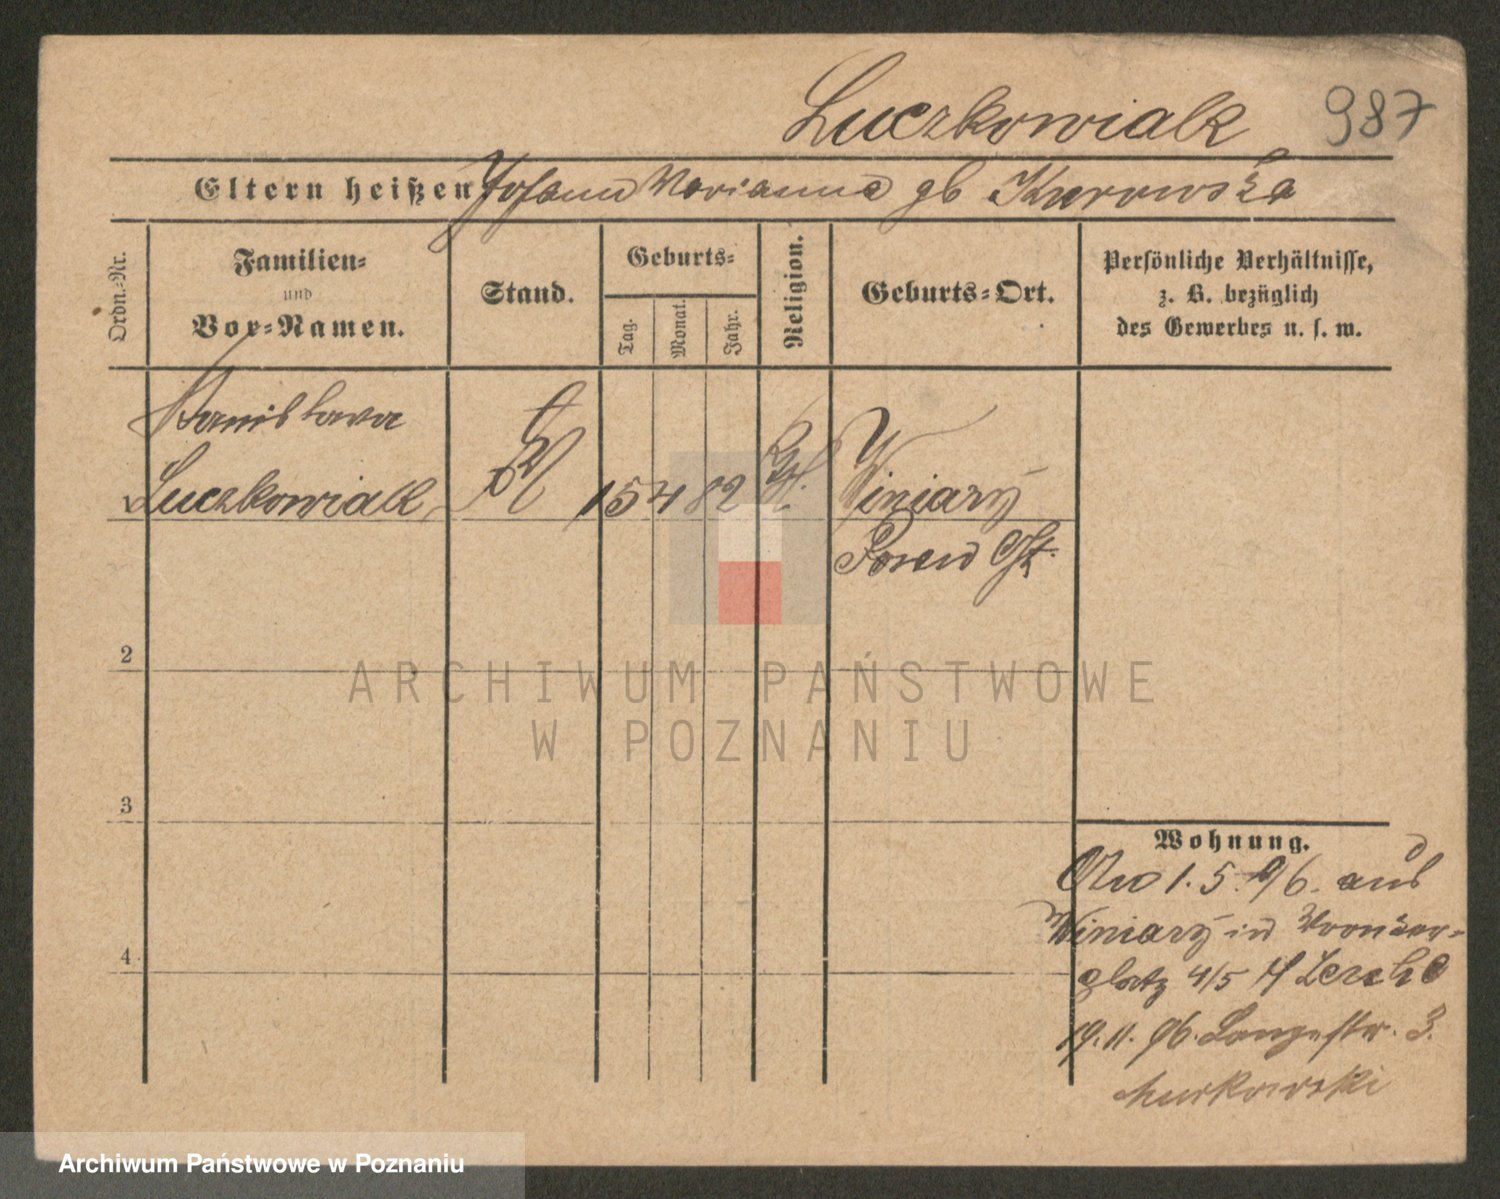 Luczkowiak 987
Eltern heißen Johann Marianna gb Kurowska
Ordn.-Nr.
Familien-
und
Vor-Namen.
Stand.
Geburts-
Tag.
Monat.
Jahr.
Religion.
Geburts-Ort.
Persönliche Verhältnisse,
z. B. bezüglich
des Gewerbes u. s. w.
Stanislawa
Luczkowiak 15 4 82 Winiary
Posen Ost.
2
3
4
Wohnung.
1.5.96. aus
Winiary in Wronker-
platz 4/5 Lerche
19.11.96. Langestr. 3.
Murkowski
ARCHIWUM PAŃSTWOWE
W POZNANIU
Archiwum Państwowe w Poznaniu